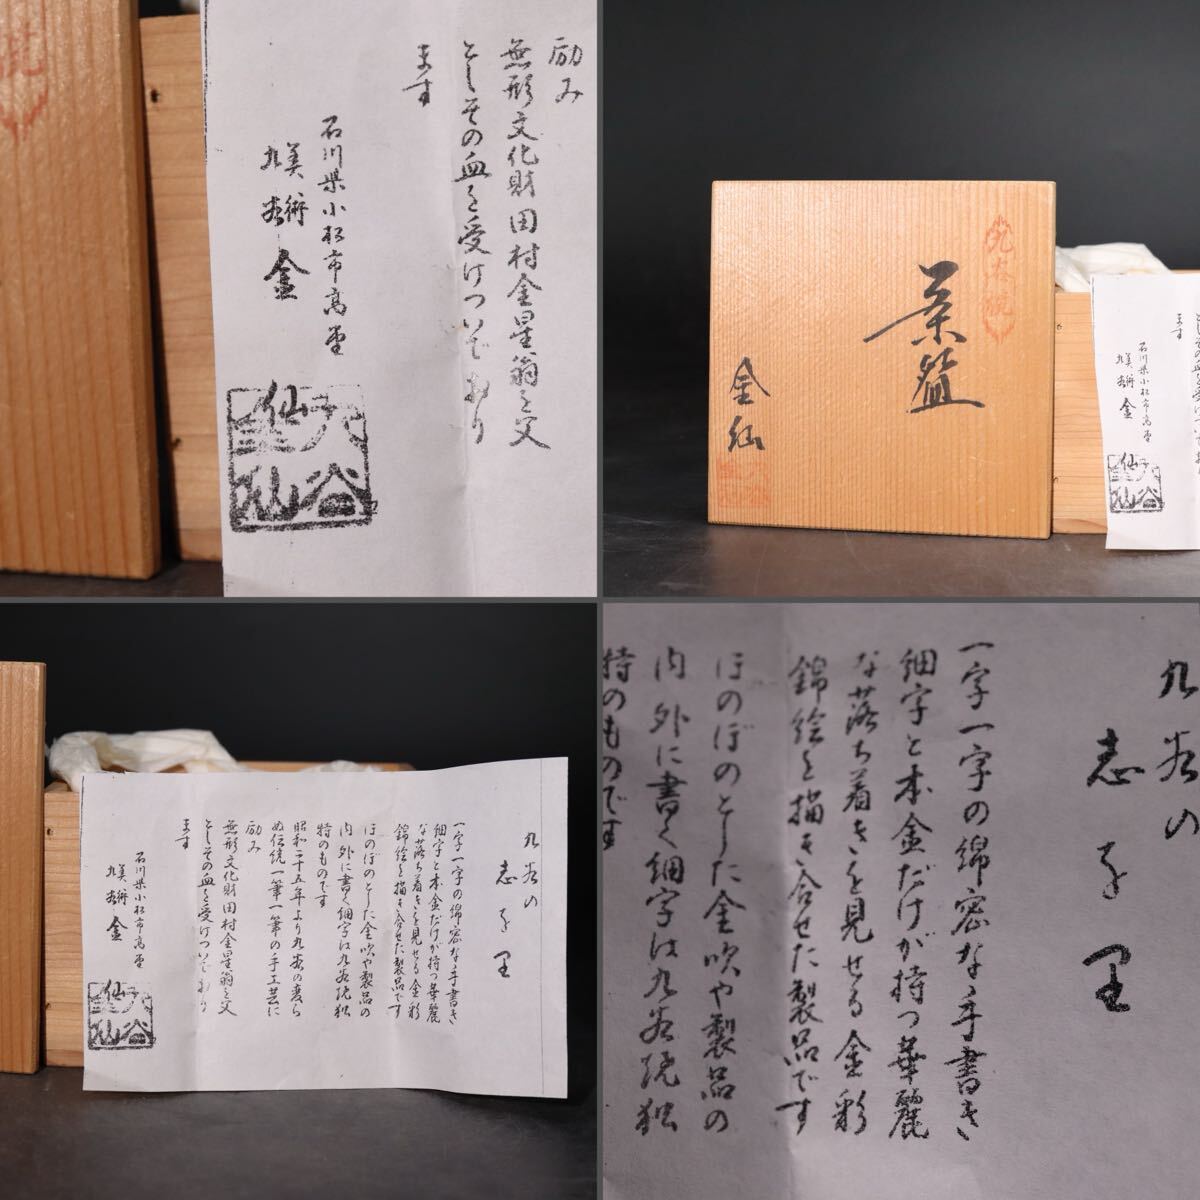 励み
無形文化財田村金星翁を父
としその血を受けついでおり
ます
石川県小松市高堂
九谷美術
金仙
九谷
茶盌
金仙
ます
石川県小松市高堂
九谷美術
金仙
九谷の
志を里
一字一字の綿密な手書き
細字と本金だけが持つ華麗
な落ち着きを見せる金彩
錦絵を描き合せた製品です
ほのぼのとした金吹や製品の
内外に書く細字は九谷焼独
特のものです
昭和二十五年より九谷の変ら
ぬ伝統一筆一筆の手工芸に
励み
無形文化財田村金星翁を父
としその血を受けついでおり
ます
石川県小松市高堂
九谷美術
金仙
九谷の
志を里
一字一字の綿密な手書き
細字と本金だけが持つ華麗
な落ち着きを見せる金彩
錦絵を描き合せた製品です
ほのぼのとした金吹や製品の
内外に書く細字は九谷焼独
特のものです